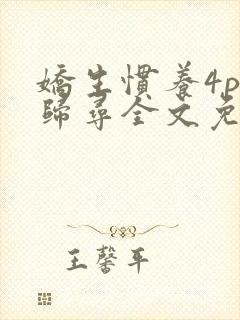 嬌生慣養4p
歸尋全文免
王馨平